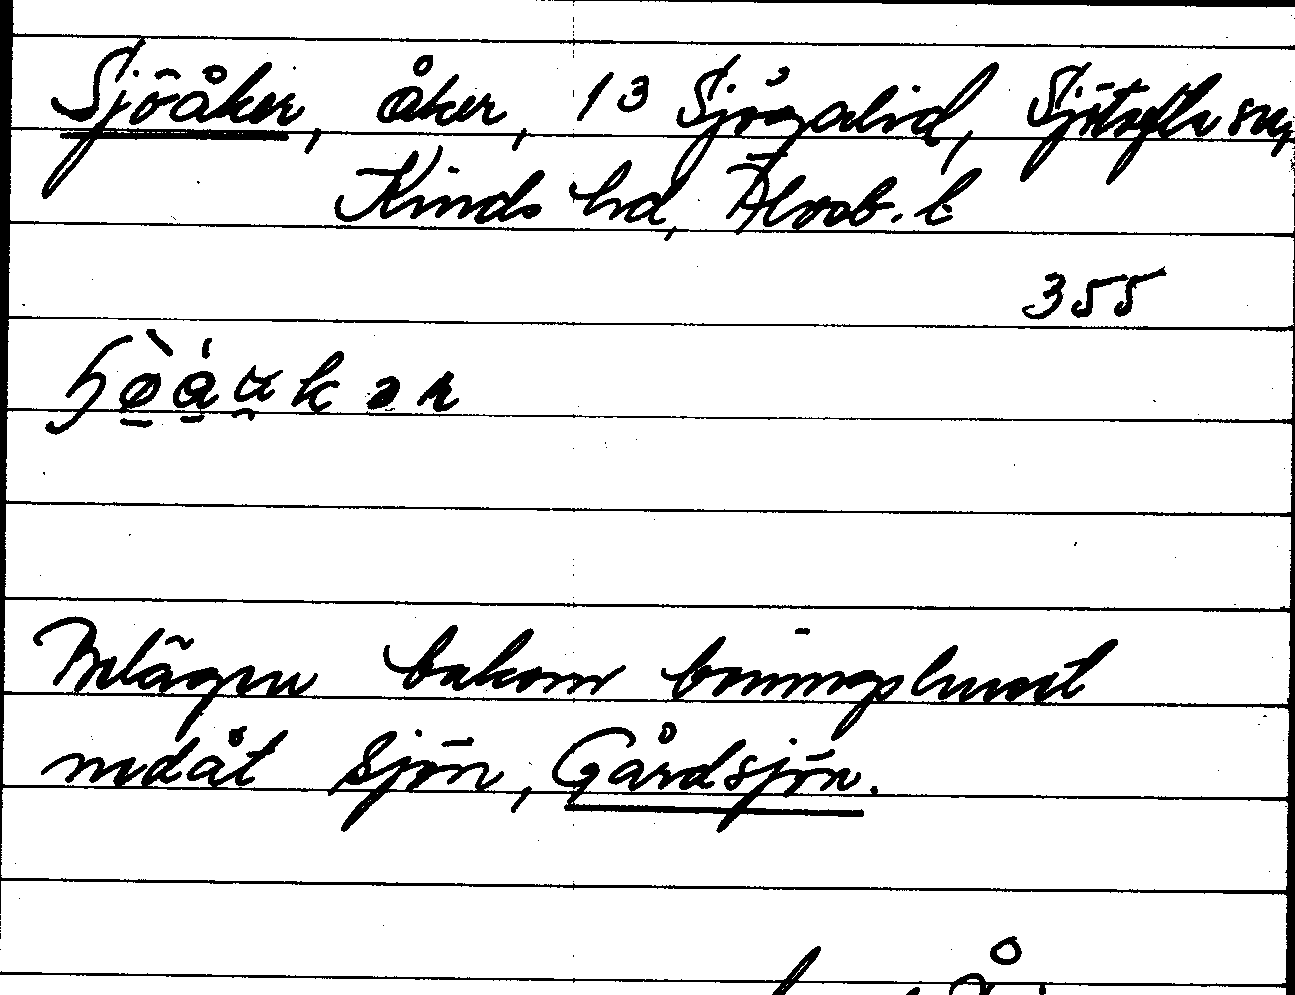 Sjöåker, åker, 13 Sjögalid, Sjötofta sn,
Kinds hd, Älvsb. l
355
Belägen bakom boningshuset
nedåt sjön, Gårdsjön.